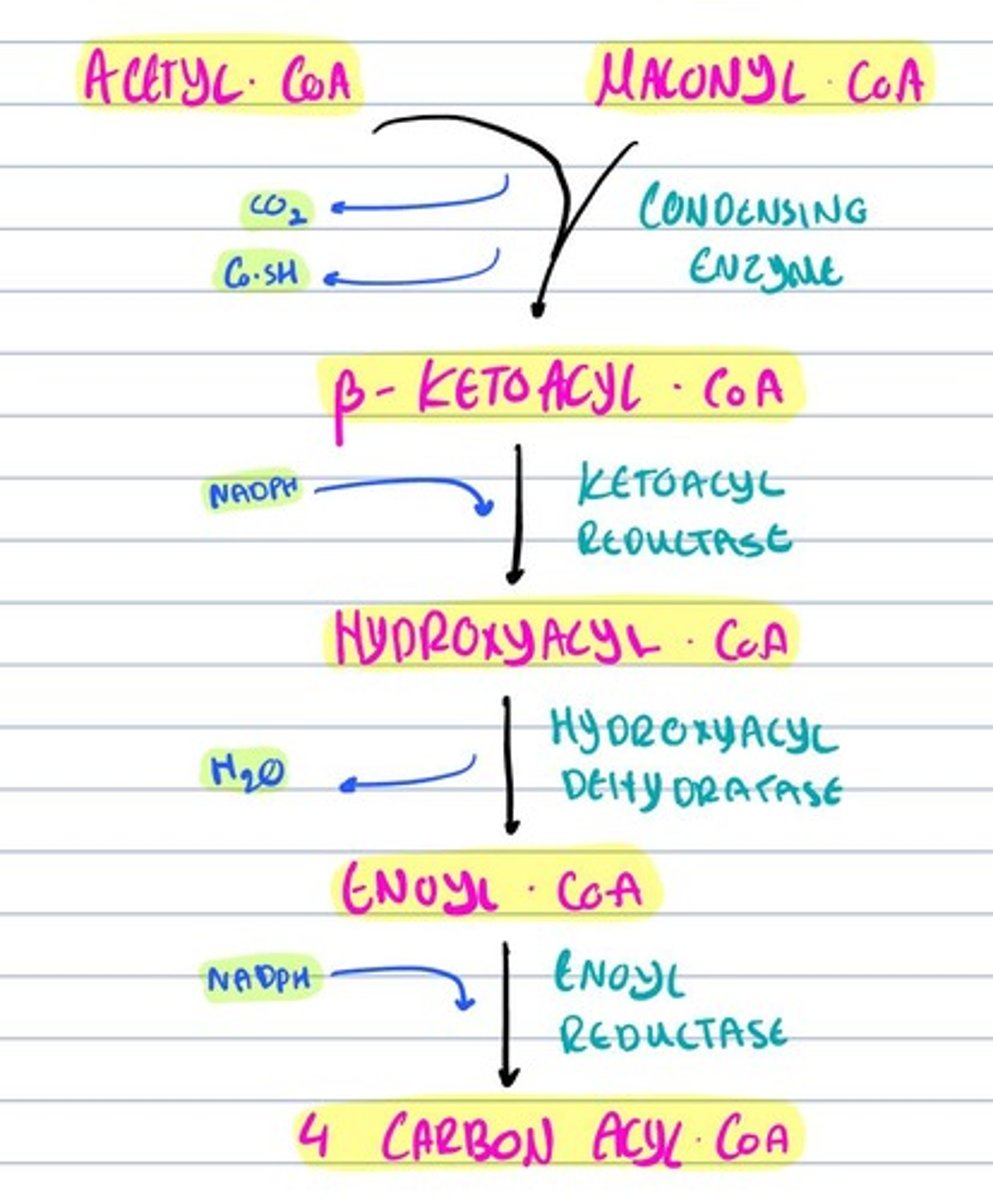 ACETYL · CoA
MALONYL · CoA
CO2
CONDENSING
Co·SH
ENZYME
β - KETOACYL · CoA
NADPH
KETOACYL
REDUCTASE
HYDROXYACYL · CoA
HYDROXYACYL
H2O
DEHYDRATASE
ENOYL · CoA
NADPH
ENOYL
REDUCTASE
4 CARBON ACYL · CoA